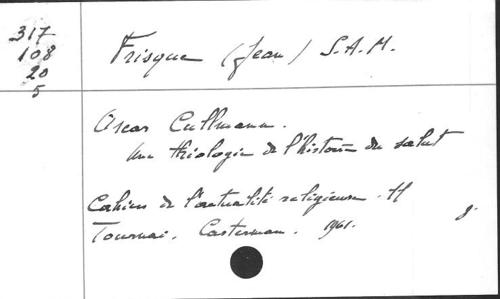 317
108
20
5
Frisque (Jean) S.A.M.
Oscar Cullmann.
Une théologie de l'histoire du salut
Cahiers de l'actualité religieuse. 11
Tournai. Casterman. 1961.